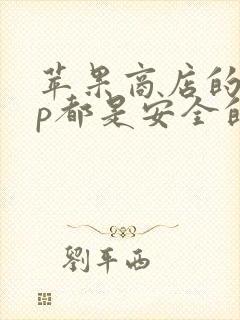 苹果商店的
p都是安全的
劉平西